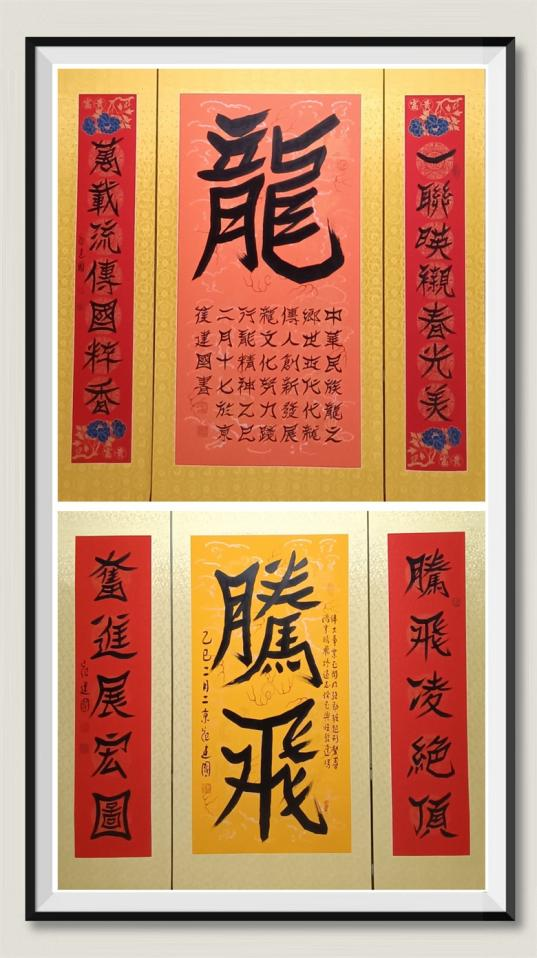 富貴
一聯暎襯春光美
富貴
龍
中華民族龍之
鄉世世代代龍
傳人創新發展
龍文化努力踐
行龍精神乙巳
二月十七於京
崔建國書
富貴
萬載流傳國粹香
崔建國
騰飛凌絶頂
騰飛
乙巳二月二京崔建國
奮進展宏圖
崔建國